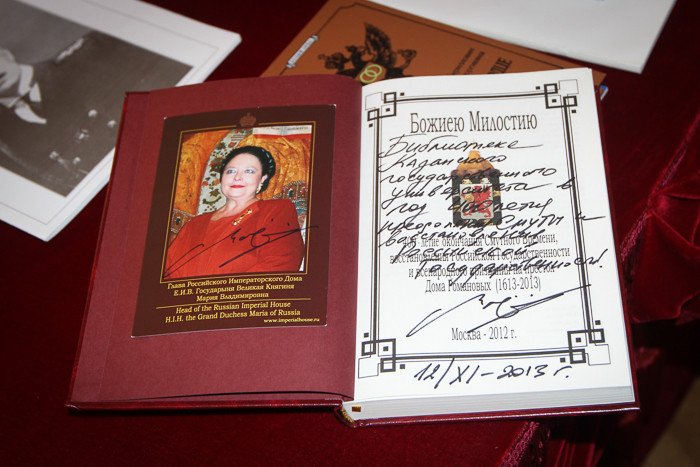 Глава Российского Императорского Дома
Е.И.В. Государыня Великая Княгиня
Мария Владимировна
Head of the Russian Imperial House
H.I.H. the Grand Duchess Maria of Russia
www.imperialhouse.ru
Божиею Милостию
Библиотеке
Казанского
государственного
университета в
год
преодоления Смуты и
восстановления
российской
государственности!
летие окончания Смутного Времени,
восстановления Российской Государственности
и всенародного призвания на престол
Дома Романовых (1613-2013)
Москва - 2012 г.
12/XI-2013 г.